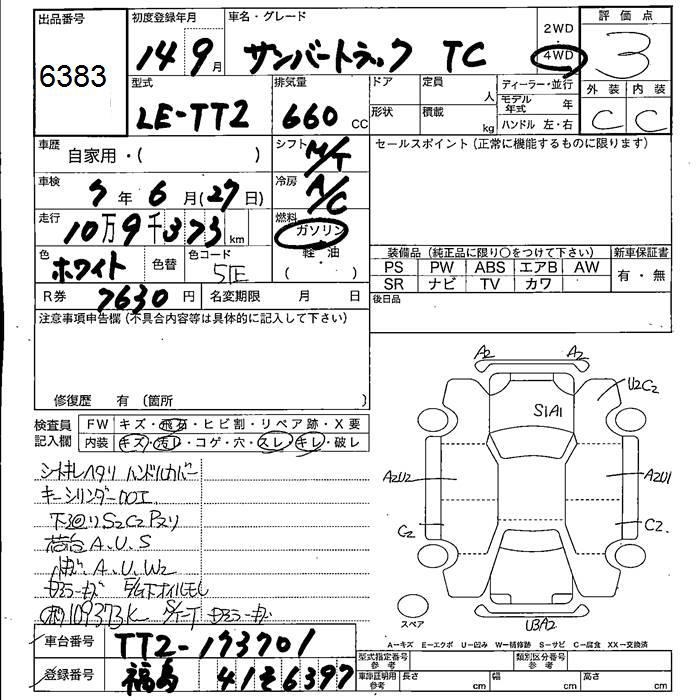 出品番号
6383
初度登録年月
14 9月
車名・グレード
サンバートラック TC
2WD
4WD
評価点
3
外装 内装
C C
型式
LE-TT2
排気量
660 CC
ドア
形状
定員
人
積載
kg
ディーラー・並行
モデル年式 年
ハンドル 左・右
車歴
自家用・( )
シフト
M/T
車検
7年 6月(27日)
冷房
A/C
走行
10万9千373km
燃料
ガソリン
軽・油
( )
色
ホワイト
色替
色コード
51E
R券 7630円
名変期限 月 日
セールスポイント(正常に機能するものに限ります)
装備品(純正品に限り○をつけて下さい)
PS PW ABS エアB AW
SR ナビ TV カワ
新車保証書
有・無
後日品
注意事項申告欄(不具合内容等は具体的に記入して下さい)
修復歴 有(箇所 )
検査員記入欄
FW キズ・飛石・ヒビ割・リペア跡・X要
内装 キズ・汚レ・コゲ・穴・スレ・キレ・破レ
シートキレヘタリ ハンドルカバー
キーシリンダーDOエ
下廻りS2C2P2リ
荷台A.U.S
A.U.W2
E/G下オイルモレ
109373K
車台番号 TT2-173701
登録番号 福島 41そ6397
A2 A2
U2C2
S1A1
A2U2
A2U1
C2
C2
スペア
U3A2
A-キズ E-エクボ U-凹み W-補修跡 S-サビ C-腐食 XX-交換済
型式指定番号 参考
類別区分番号 参考
車庫証明用 参考
長さ cm
幅 cm
高さ cm